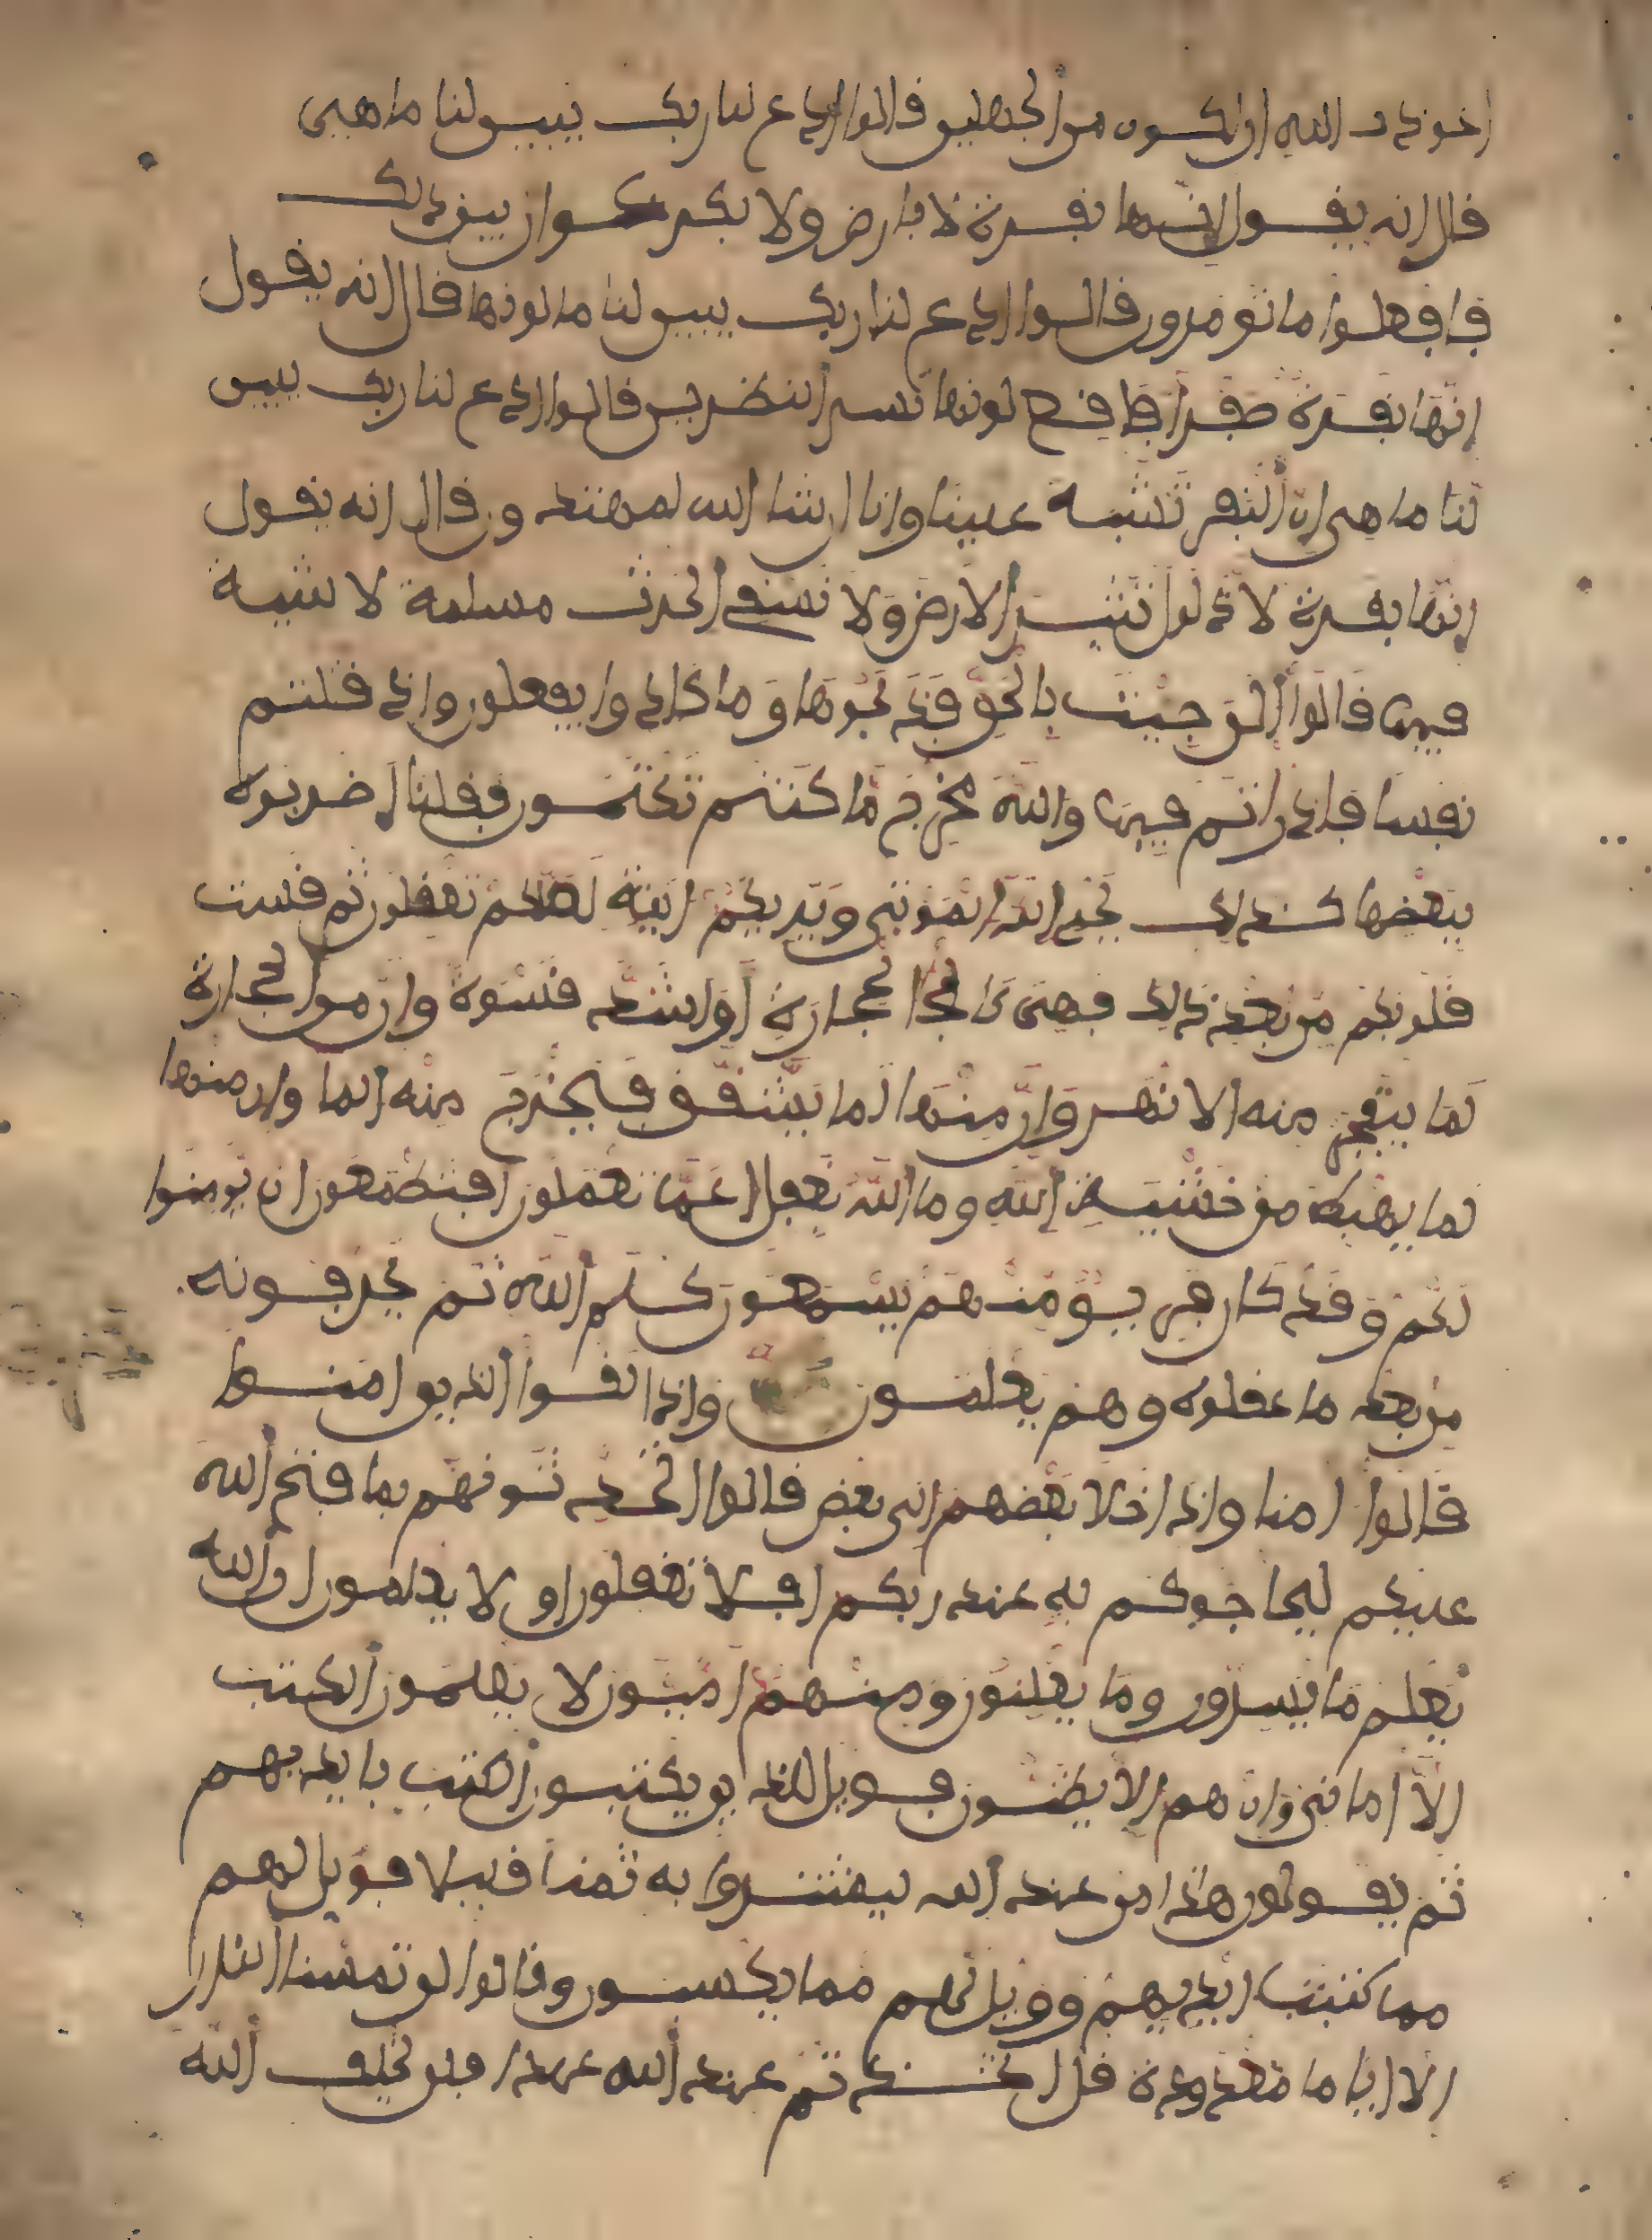 اعوذ بالله ان اكون من الجهلين قالوا ادع لنا ربك يبين لنا ما هى
قال انه يقول انها بقرة لا فارض ولا بكر عوان بين ذلك
فافعلوا ما تومرون قالوا ادع لنا ربك يبين لنا ما لونها قال انه يقول
انها بقرة صفرا فاقع لونها تسر النظرين قالوا ادع لنا ربك يبين
لنا ما هى ان البقر تشبه علينا وانا ان شا الله لمهتدون قال انه يقول
انها بقرة لا ذلول تثير الارض ولا تسقى الحرث مسلمة لا شية
فيها قالوا الن جيت بالحق فذبحوها وما كادوا يفعلون واذ قتلتم
نفسا فادرأتم فيها والله مخرج ما كنتم تكتمون فقلنا اضربوه
ببعضها كذلك يحى الله الموتى ويريكم ايته لعلكم تعقلون ثم قست
قلوبكم من بعد ذلك فهى كالحجارة او اشد قسوة وان من الحجارة
لما يتفجر منه الانهر وان منها لما يشقق فيخرج منه الما وان منها
لما يهبط من خشية الله وما الله بغفل عما تعملون افتطمعون ان يومنوا
لكم وقد كان فريق منهم يسمعون كلم الله ثم يحرفونه
من بعد ما عقلوه وهم يعلمون واذا لقوا الذين امنوا
قالوا امنا واذا خلا بعضهم الى بعض قالوا اتحدثونهم بما فتح الله
عليكم ليحاجوكم به عند ربكم افلا تعقلون اولا يعلمون ان الله
يعلم ما يسرون وما يعلنون ومنهم اميون لا يعلمون الكتب
الا امانى وان هم الا يظنون فويل للذين يكتبون الكتب بايديهم
ثم يقولون هذا من عند الله ليشتروا به ثمنا قليلا فويل لهم
مما كتبت ايديهم وويل لهم مما يكسبون وقالوا لن تمسنا النار
الا اياما معدودة قل اتخذتم عند الله عهدا فلن يخلف الله